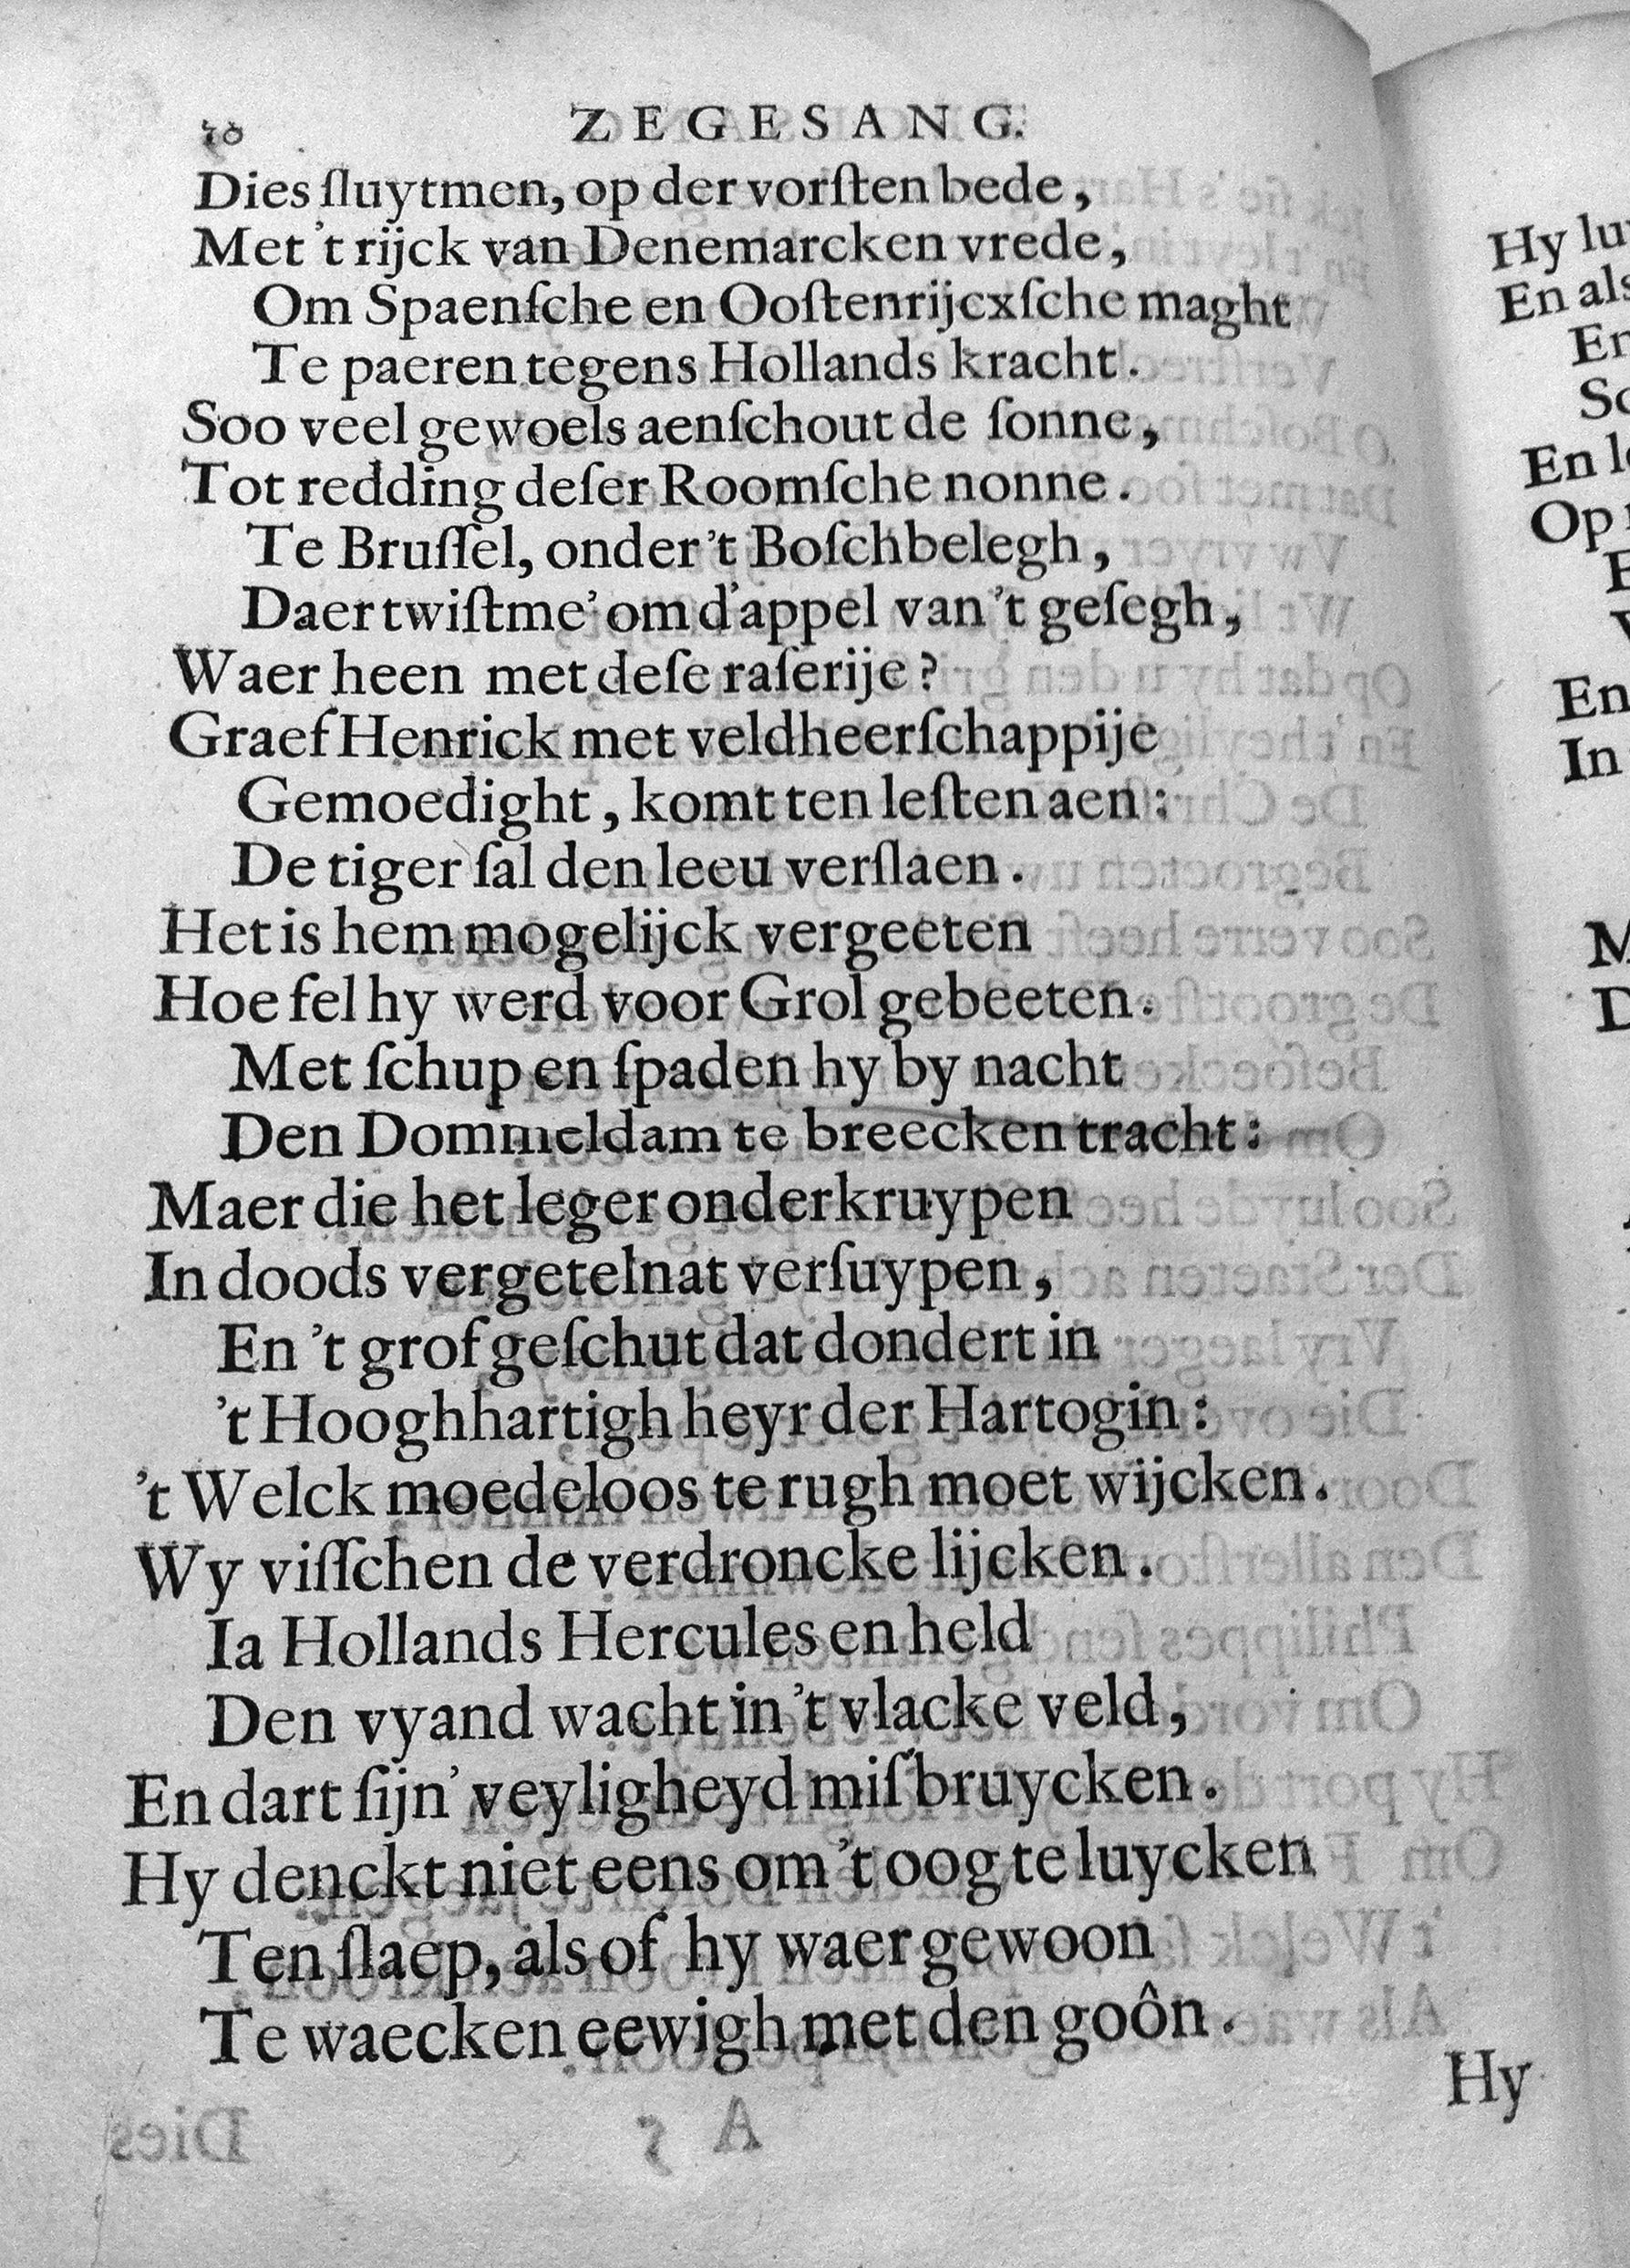 ZEGESANG.
Dies ſluytmen, op der vorſten bede,
Met 't rijck van Denemarcken vrede,
Om Spaenſche en Ooſtenrijcxſche maght
Te paeren tegens Hollands kracht.
Soo veel gewoels aenſchout de ſonne,
Tot redding deſer Roomſche nonne.
Te Bruſſel, onder 't Boſchbelegh,
Daer twiſtme' om d'appel van 't geſegh,
Waer heen met deſe raſerije?
Graef Henrick met veldheerſchappije
Gemoedight, komt ten leſten aen:
De tiger ſal den leeu verſlaen.
Het is hem mogelijck vergeeten
Hoe fel hy werd voor Grol gebeeten.
Met ſchup en ſpaden hy by nacht
Den Dommeldam te breecken tracht:
Maer die het leger onderkruypen
In doods vergetelnat verſuypen,
En 't grof geſchut dat dondert in
't Hooghhartigh heyr der Hartogin:
't Welck moedeloos te rugh moet wijcken.
Wy viſſchen de verdroncke lijcken.
Ia Hollands Hercules en held
Den vyand wacht in 't vlacke veld,
En dart ſijn' veyligheyd miſbruycken.
Hy denckt niet eens om 't oog te luycken
Ten ſlaep, als of hy waer gewoon
Te waecken eewigh met den goôn.
Hy
Hy
En als
En
En
Op
En
In